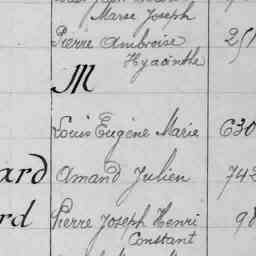 Marse Joseph
Pierre Ambroise 251
Hyacinthe
M
Louis Eugène Marie 630
ard Amand Julien 742
rd Pierre Joseph Henri 98
Constant